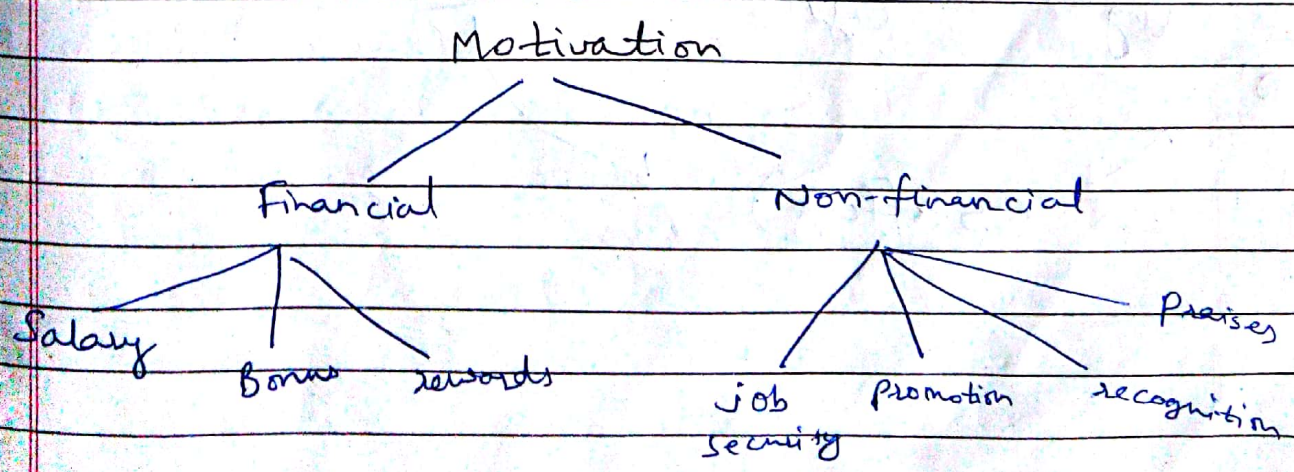 Motivation
Financial Non-financial
Salary Bonus rewards
job security promotion recognition Praises